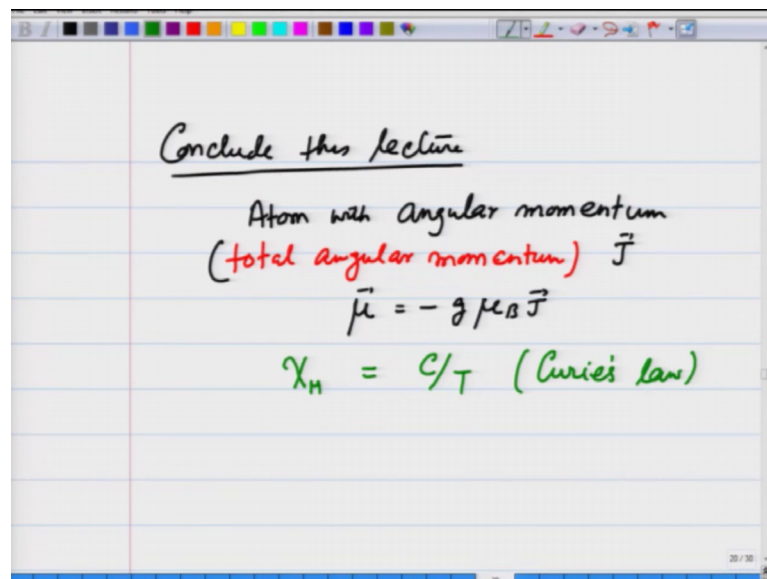 Conclude this lecture
Atom with angular momentum
(total angular momentum) J⃗
μ⃗ = - g μ_B J⃗
χ_M = C/T (Curie's law)
20 / 30